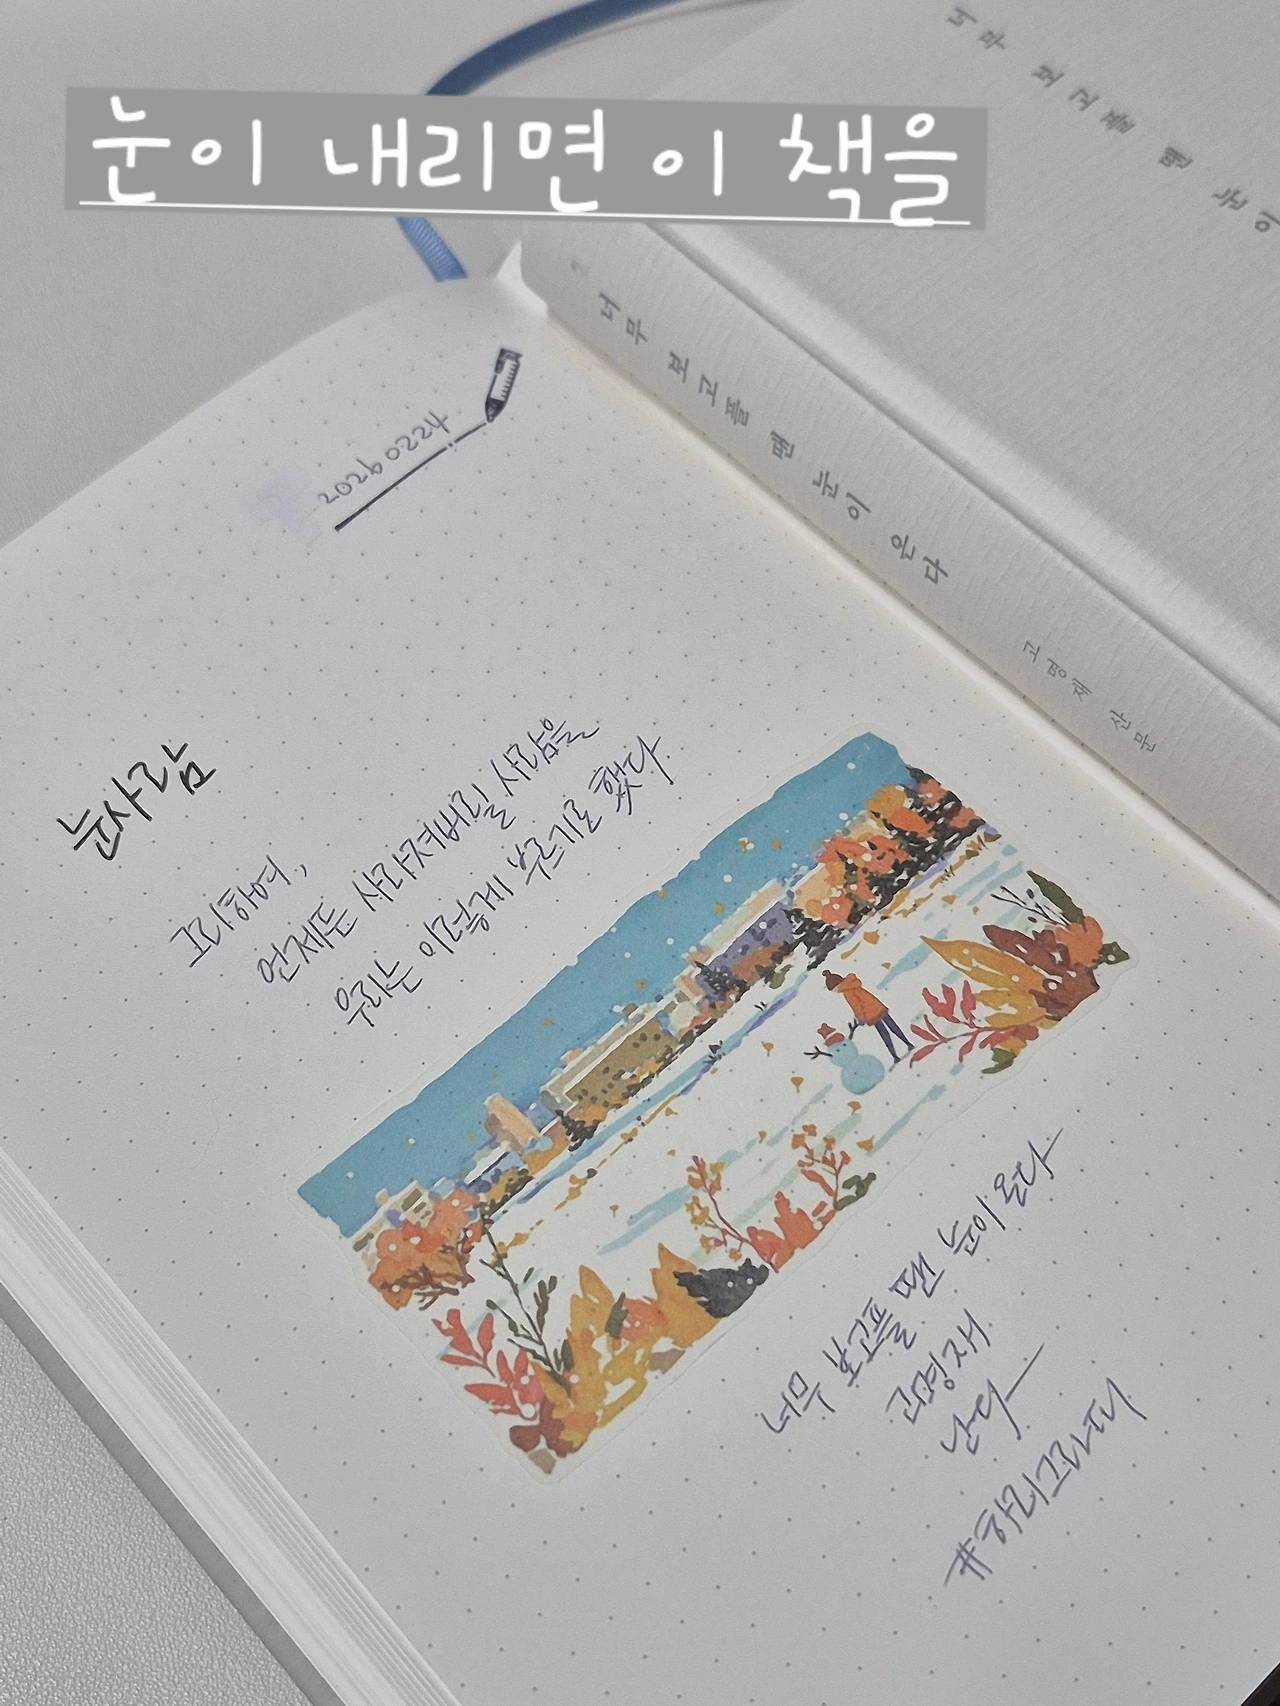 눈이 내리면 이 책을
너무 보고플 땐 눈이
너무 보고플 땐 눈이 온다
고명재 산문
20260224
눈사람
그리하여,
언제든 사라져버릴 사람을
우리는 이렇게 부르기로 했다
너무 보고플 땐 눈이 온다
고명재
난다
#하리그라터